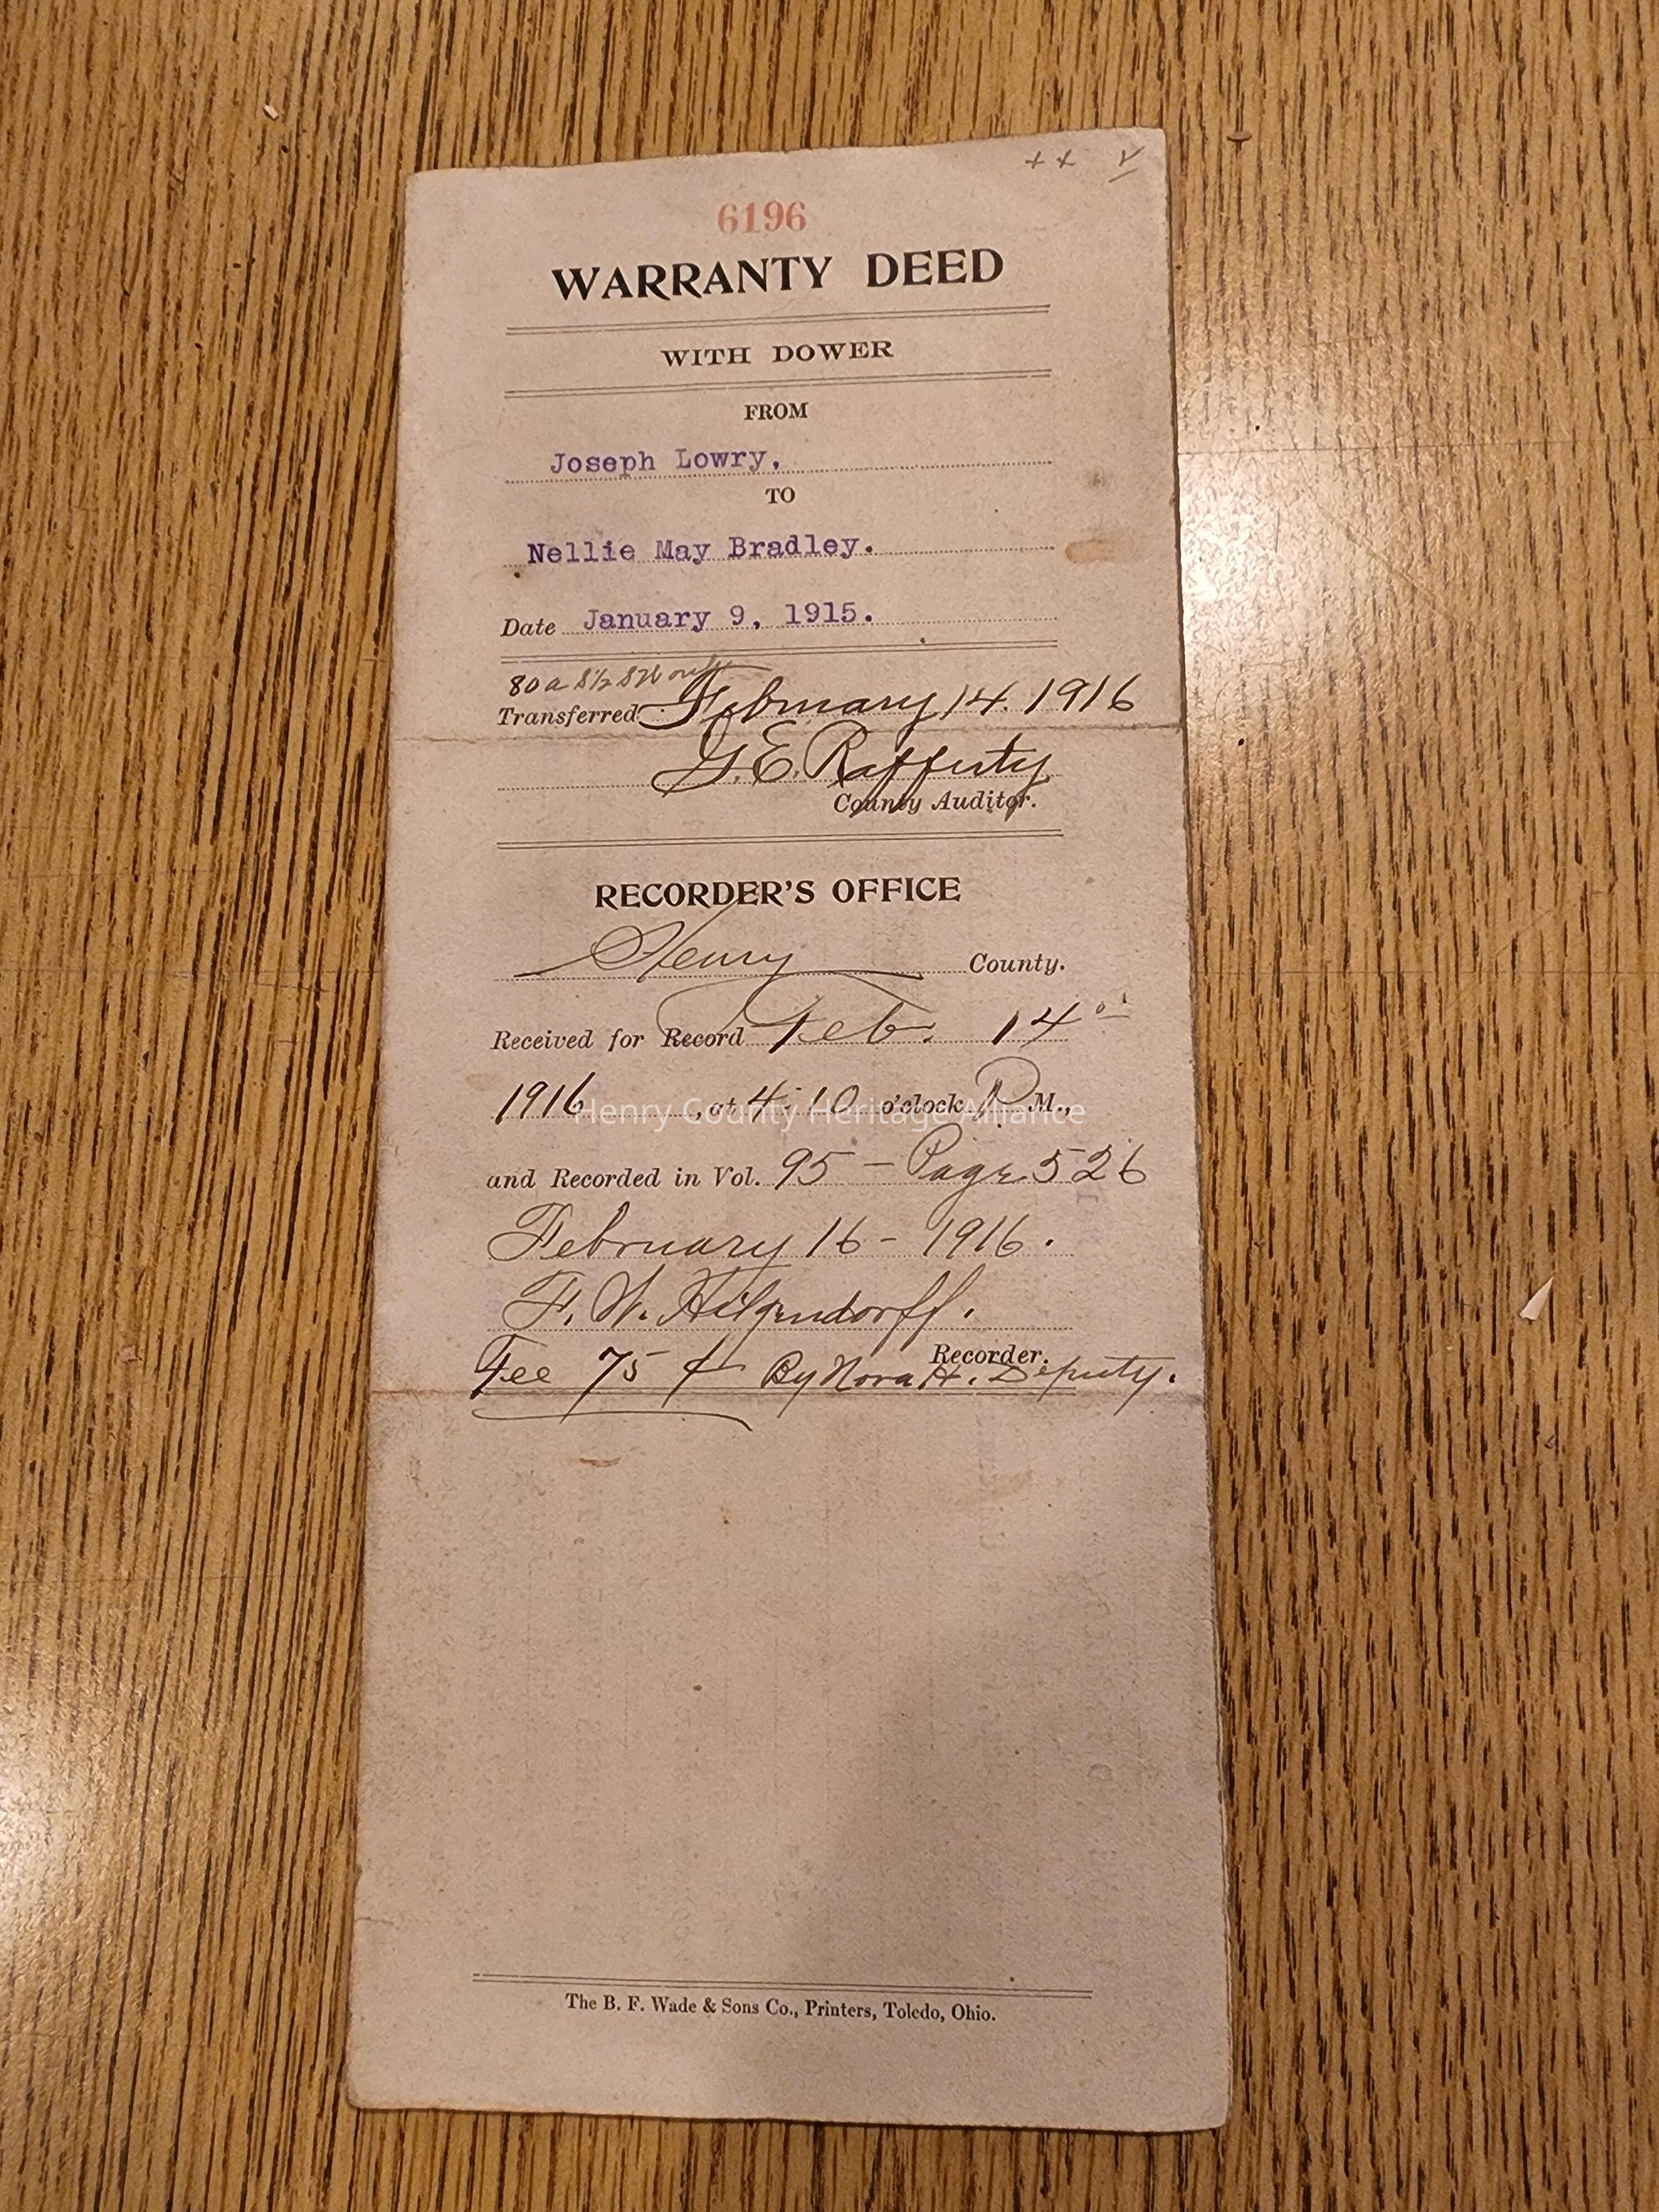 ++ Y
6196
WARRANTY DEED
WITH DOWER
FROM
Joseph Lowry,
TO
Nellie May Bradley.
Date January 9, 1915.
80 a S½
Transferred February 14. 1916
G. E. Rafferty
County Auditor.
RECORDER'S OFFICE
Henry County.
Received for Record Feb. 14
1916, at 4:10 o'clock P. M.,
Henry County Heritage Alliance
and Recorded in Vol. 95 - Page 526
February 16 - 1916.
F. W. Hilgendorff.
Recorder.
Fee 75 ¢ By Nora H. Deputy.
The B. F. Wade & Sons Co., Printers, Toledo, Ohio.